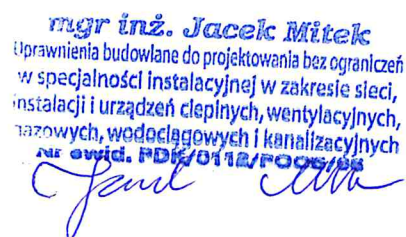 mgr inż. Jacek Mitek
Uprawnienia budowlane do projektowania bez ograniczeń
w specjalności instalacyjnej w zakresie sieci,
instalacji i urządzeń cieplnych, wentylacyjnych,
gazowych, wodociągowych i kanalizacyjnych
Nr ewid.